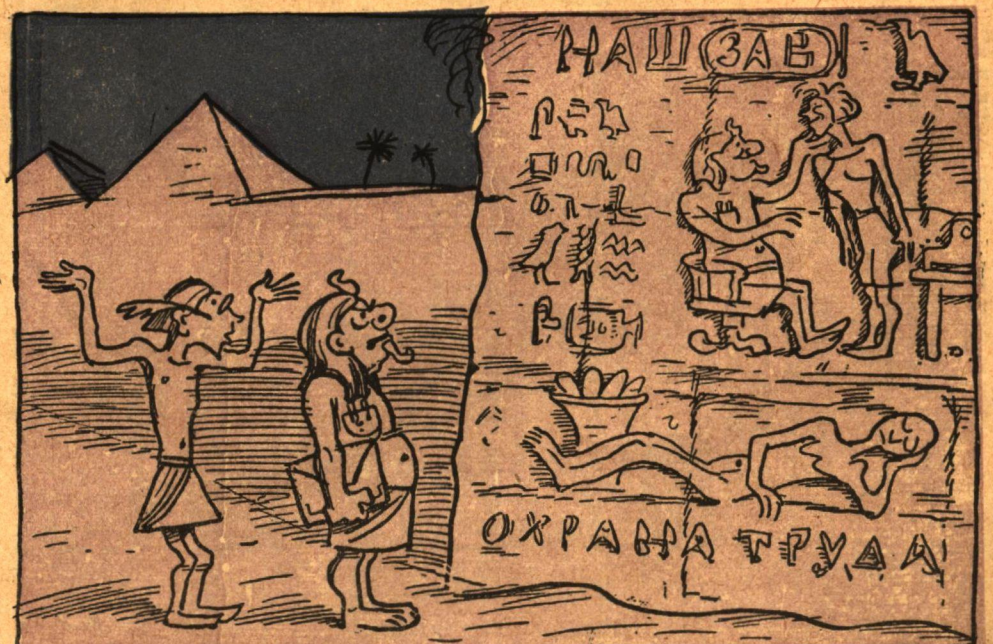 НАШ ЗАВ
ОХРАНА ТРУДА